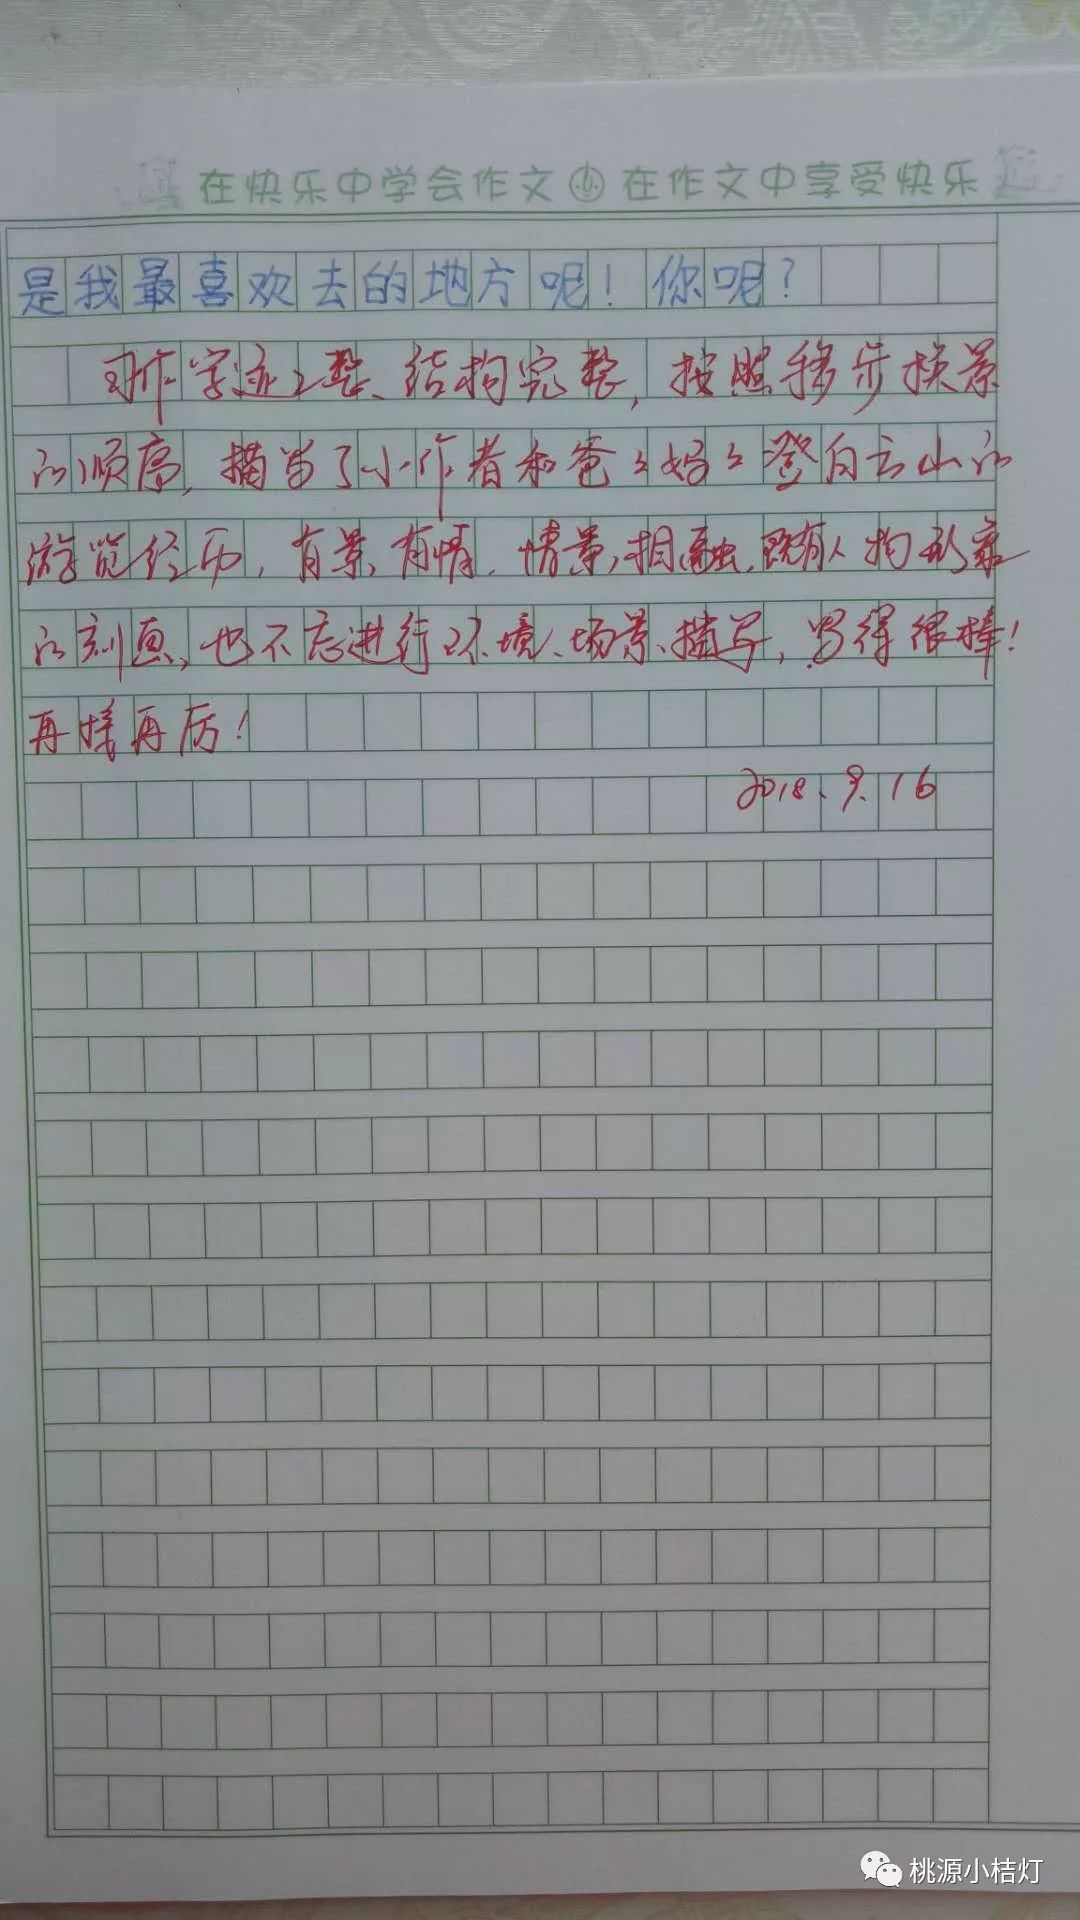 在快乐中学会作文 在作文中享受快乐
是我最喜欢去的地方呢！你呢？
习作字迹工整、结构完整，按照移步换景
的顺序，描写了小作者和爸爸妈妈登白云山的
游览经历，有景，有情，情景相融，既有人物形象
的刻画，也不忘进行环境、场景描写，写得很棒！
再接再厉！
2018.9.16
桃源小桔灯